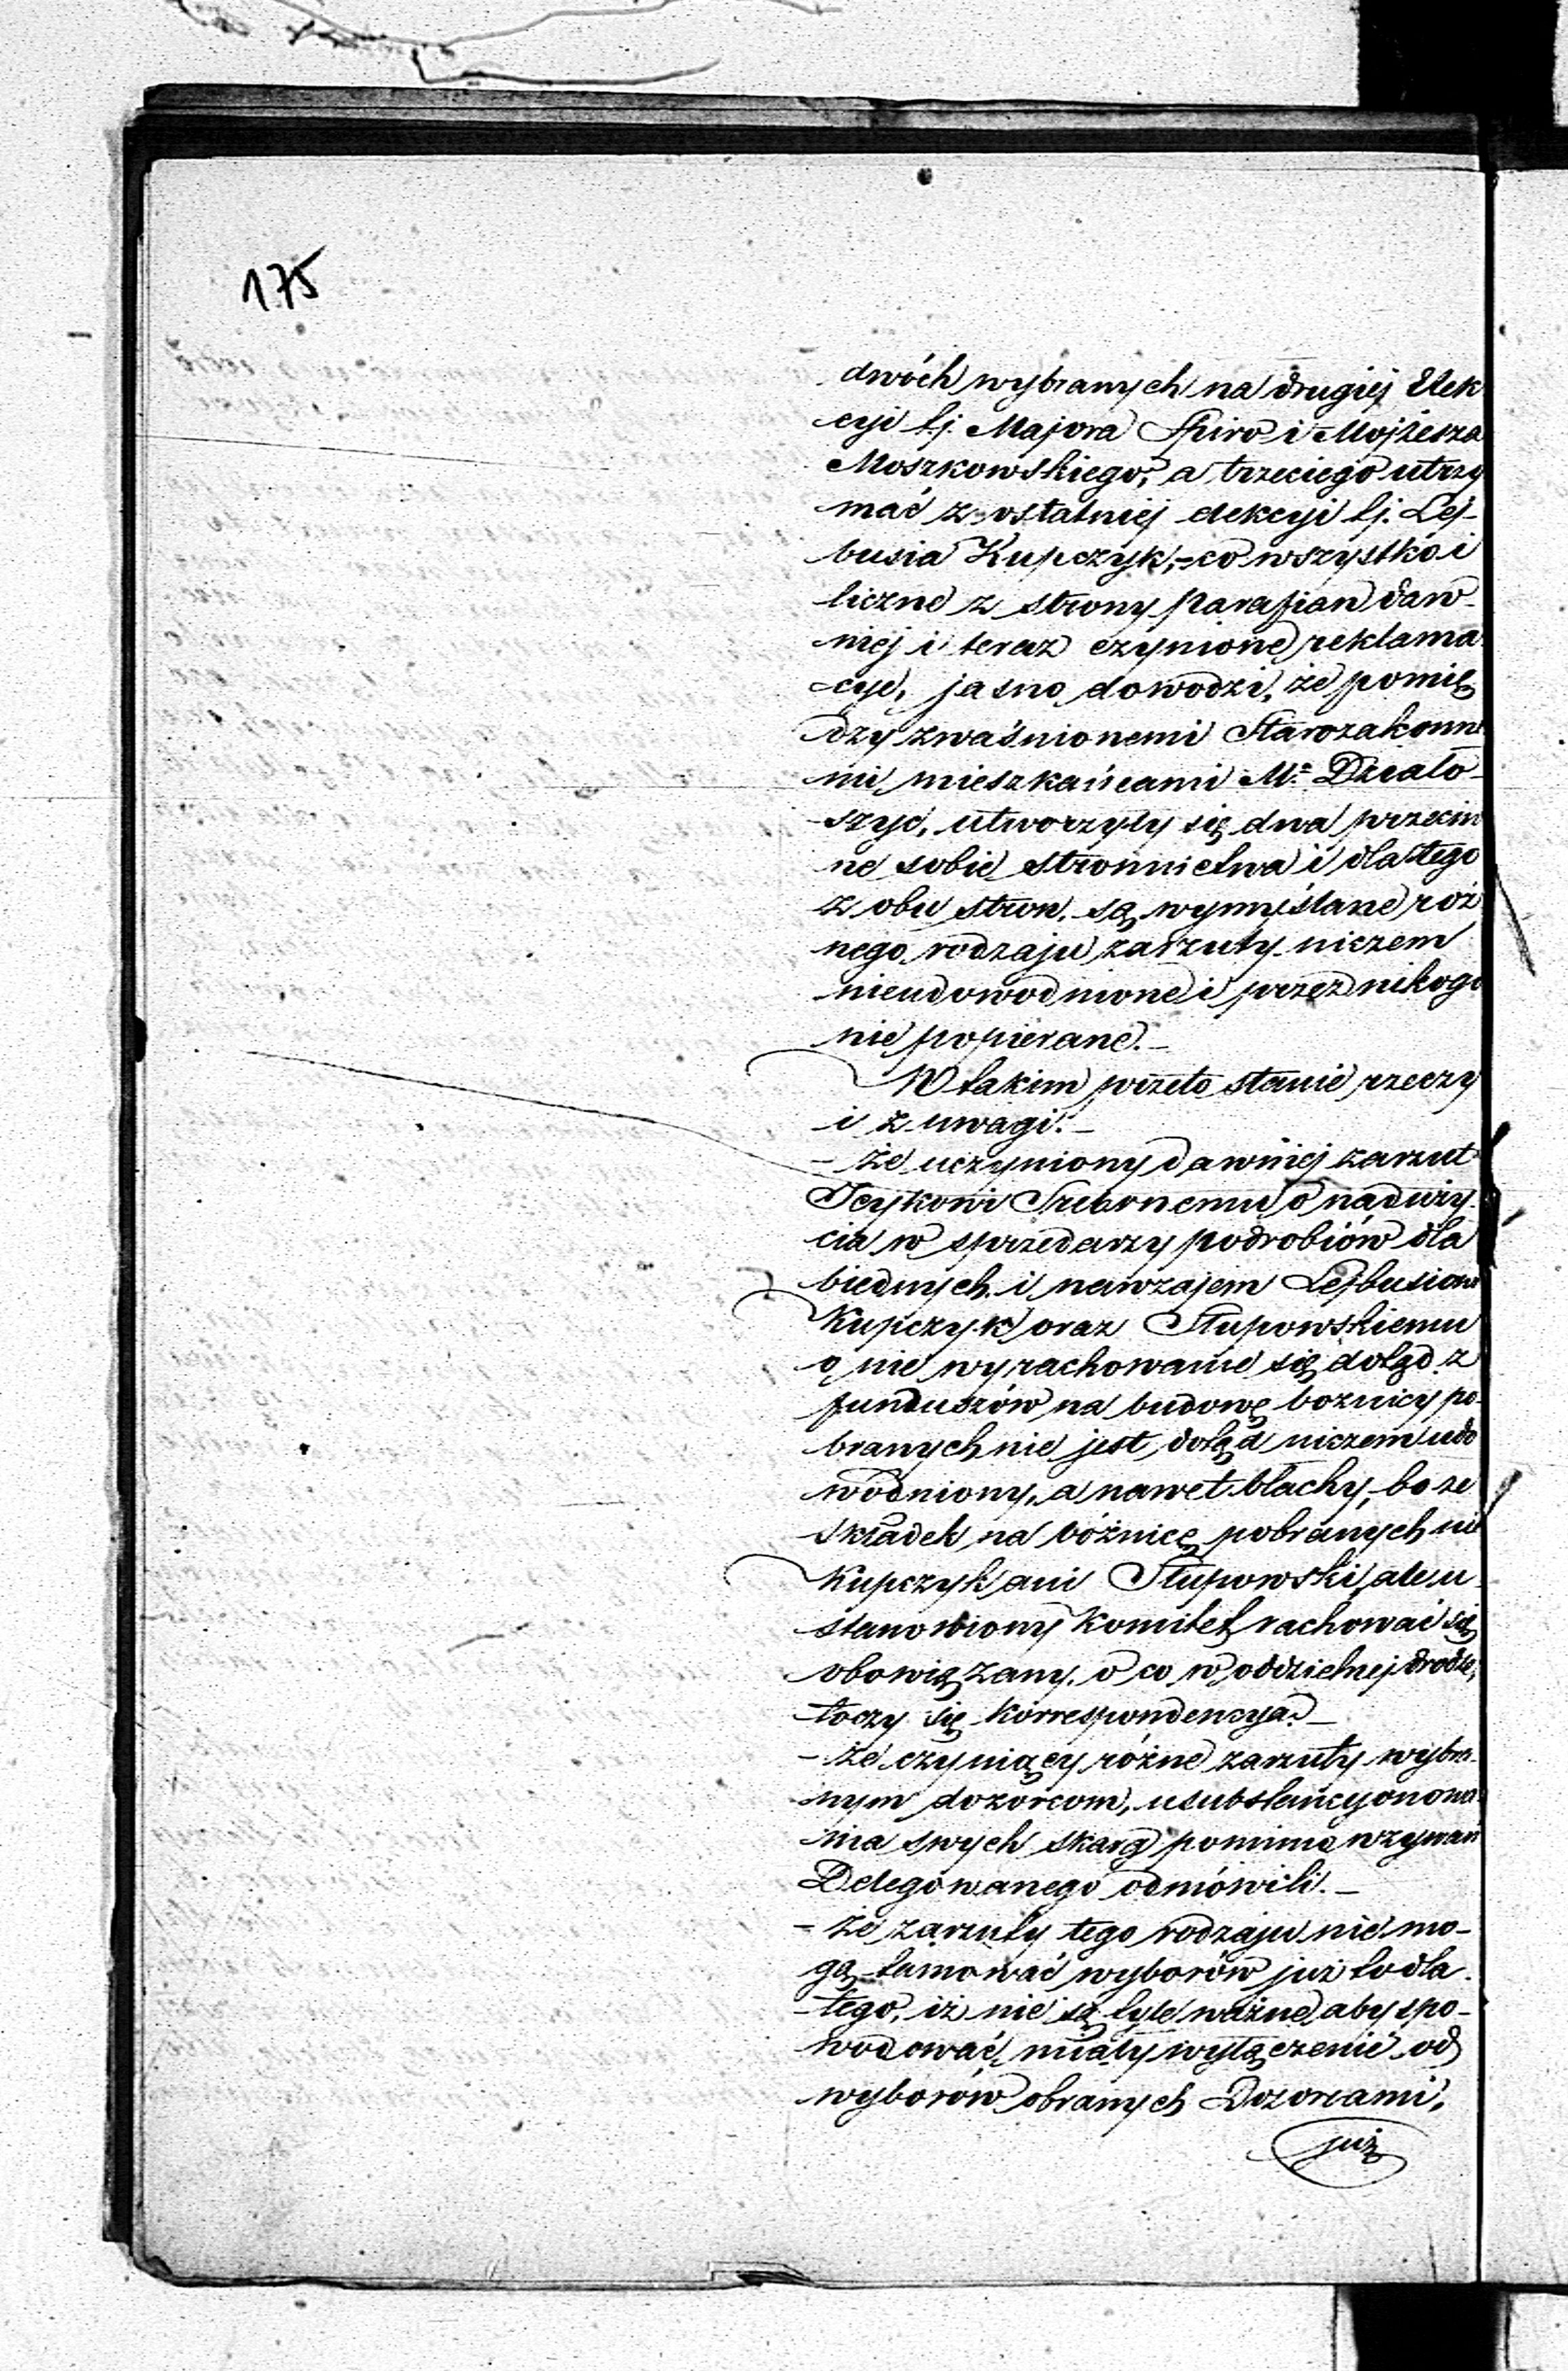 175
dwóch wybranych na drugiej Elek
cyi tj. Majora Spiro i Mojżesza
Moszkowskiego, a trzeciego utrzy
mać z ostatniej elekcyi tj. Lej-
busia Kupczyk, – co wszystko i
liczne z strony parafian daw-
niej i teraz czynione reklama
cye, jasno dowodzi, że pomię
dzy zwaśnionemi Starozakonne
mi mieszkańcami Mta Działo-
szyc, utworzyły się dwa przeciw
ne sobie stronnictwa i dla tego
z obu stron, są wymyślane róż
nego rodzaju zarzuty niczem
nieudowodnione i przez nikogo
nie popierane. –
W takim przeto stanie rzeczy
i z uwagi. –
– że uczyniony dawniej zarzut
Srebrnemu o naduży
cia w sprzedarzy podrobiów dla
biednych i nawzajem Lejbusiowi
Kupczyk oraz Słupowskiemu
o nie wyrachowanie się dotąd z
funduszów na budowę bożnicy po-
branych nie jest dotąd niczem udo
wodniony, a nawet błachy, bo ze
składek na bóżnicę pobranych nie
Kupczyk ani Słupowski, ale u
stanowiony Komitet rachować się
obowiązany, o co w oddzielnej drodze,
toczy się korrespondencya. –
– że czyniący różne zarzuty wybra-
nym dozorcom, usubstancyonowa
nia swych skarg pomimo wzywań
Delegowanego odmówili. –
– że zarzuty tego rodzaju nie mo-
gą tamować wyborów już to dla
tego, iż nie są tyle ważne, aby spo-
wodować miały wyłączenie od
wyborów obranych Dozorcami,
już